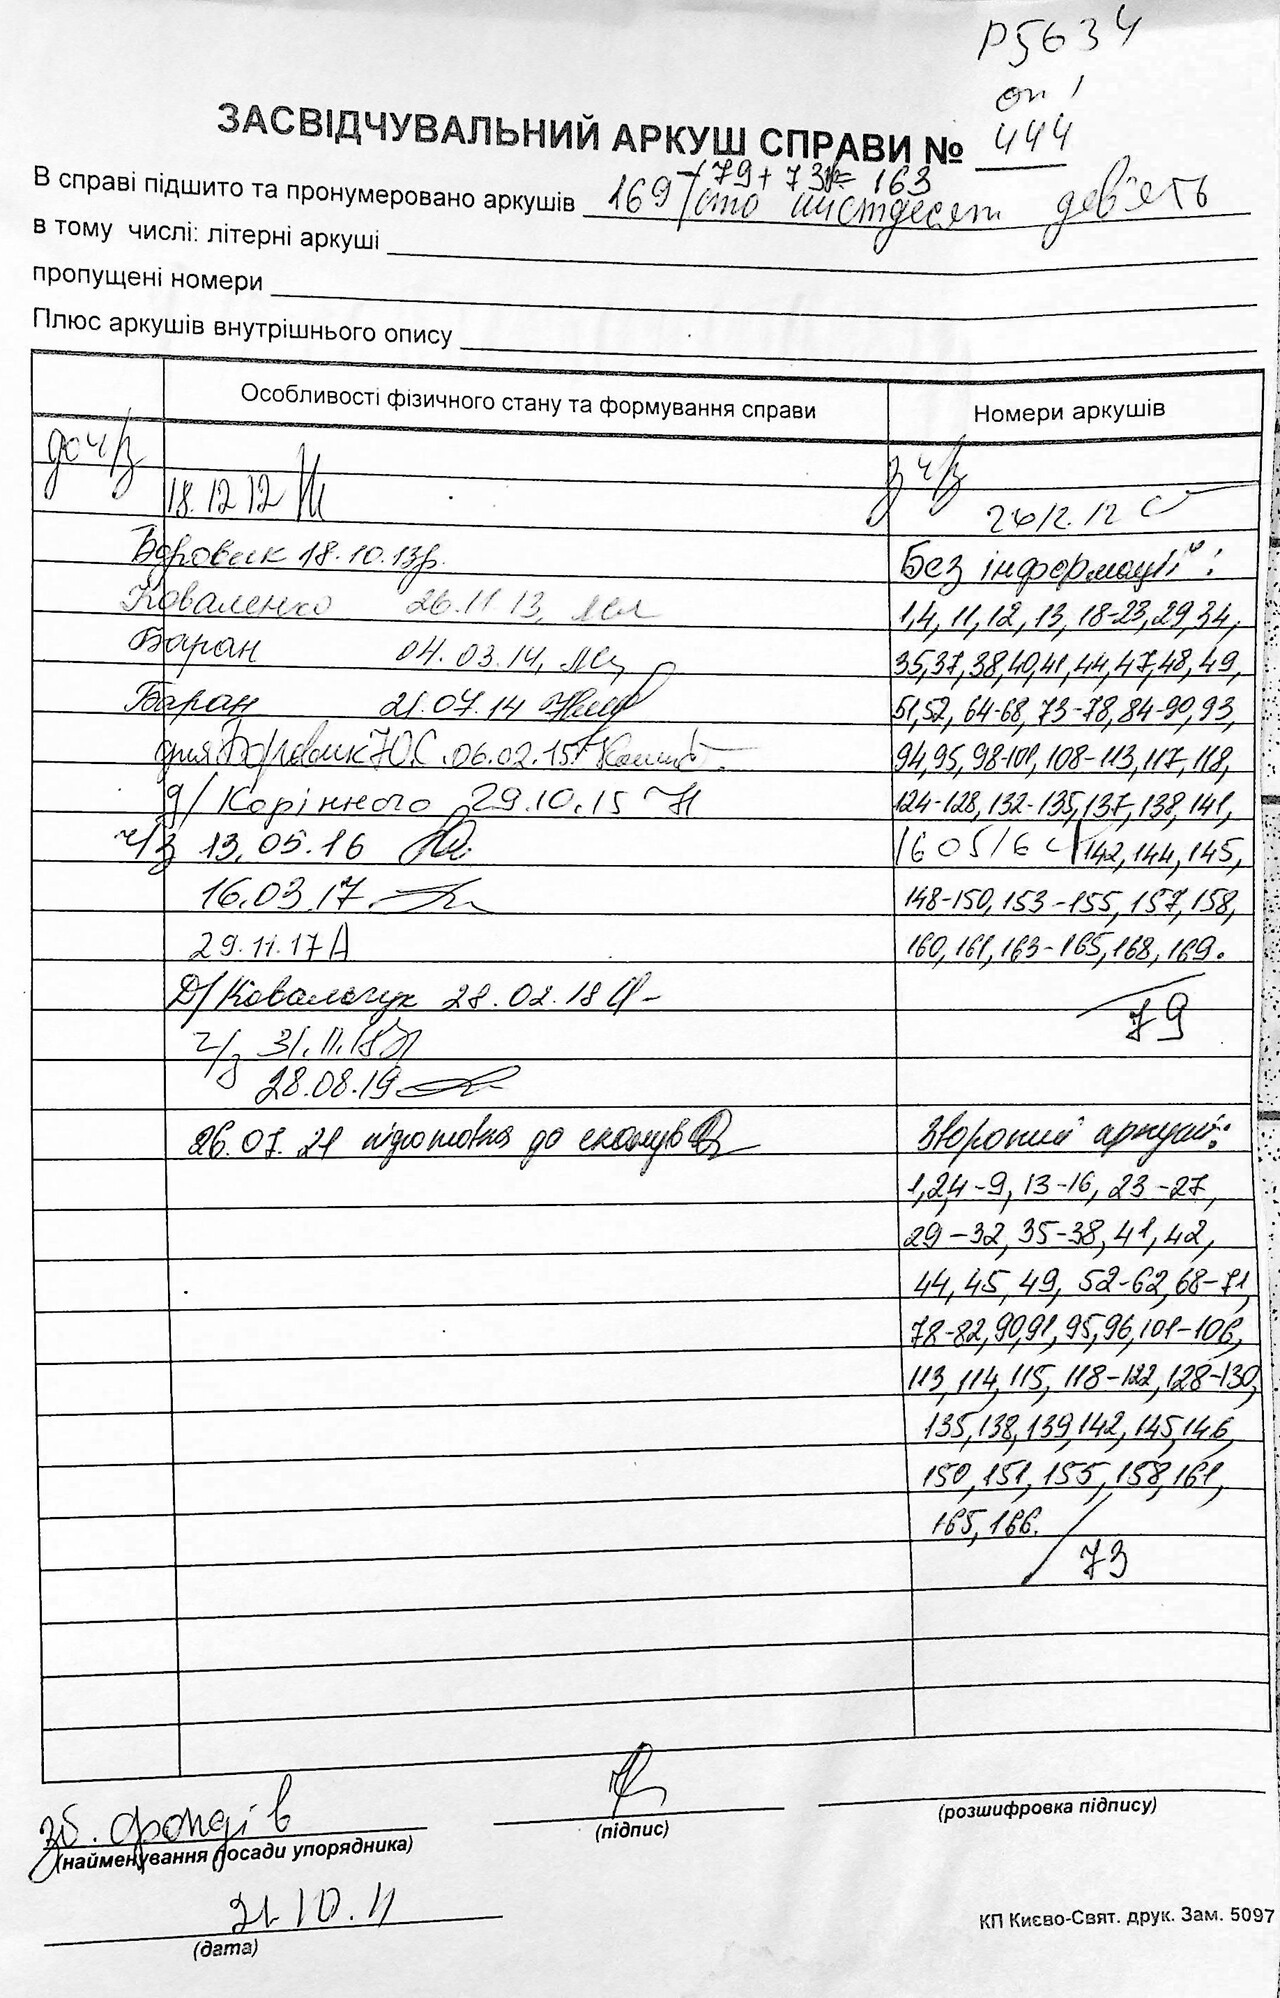 Р5634
оп 1
ЗАСВІДЧУВАЛЬНИЙ АРКУШ СПРАВИ № 444
-79+73= 163
В справі підшито та пронумеровано аркушів 169 /сто шістдесят дев'ять
в тому числі: літерні аркуші
пропущені номери
Плюс аркушів внутрішнього опису
Особливості фізичного стану та формування справи Номери аркушів
до ч/з з ч/з
18.12 12 26/2.12
Боровик 18.10.13р. Без інформації:
Коваленко 26.11.13, 1,4, 11, 12, 13, 18-23, 29, 34,
Баран 04.03.14, 35,37, 38, 40, 41, 44, 47, 48, 49,
Баран 21.07.14 51,52, 64-68, 73-78, 84-90, 93,
для Боровик Ю.С. 06.02.15 94, 95, 98-101, 108-113, 117, 118,
д/ Корінного 29.10.15 124-128, 132-135, 137, 138, 141,
ч/з 13.05.16 160516 142, 144, 145,
16.03.17 148-150, 153-155, 157, 158,
29.11.17 160, 161, 163-165, 168, 169.
Д/ Ковальчук 28.02.18 79
ч/з 31.11.18
28.08.19
26.07.21 підготовка до сканув Зворотній аркуш:
1,2,4-9, 13-16, 23-27,
29-32, 35-38, 41, 42,
44, 45, 49, 52-62, 68-71,
78-82, 90, 91, 95, 96, 101-106,
113, 114, 115, 118-122, 128-130,
135, 138, 139, 142, 145, 146,
150, 151, 155, 158, 161,
165, 166.
73
зб. фондів
(найменування посади упорядника) (підпис) (розшифровка підпису)
21.10.11
(дата)
КП Києво-Свят. друк. Зам. 5097